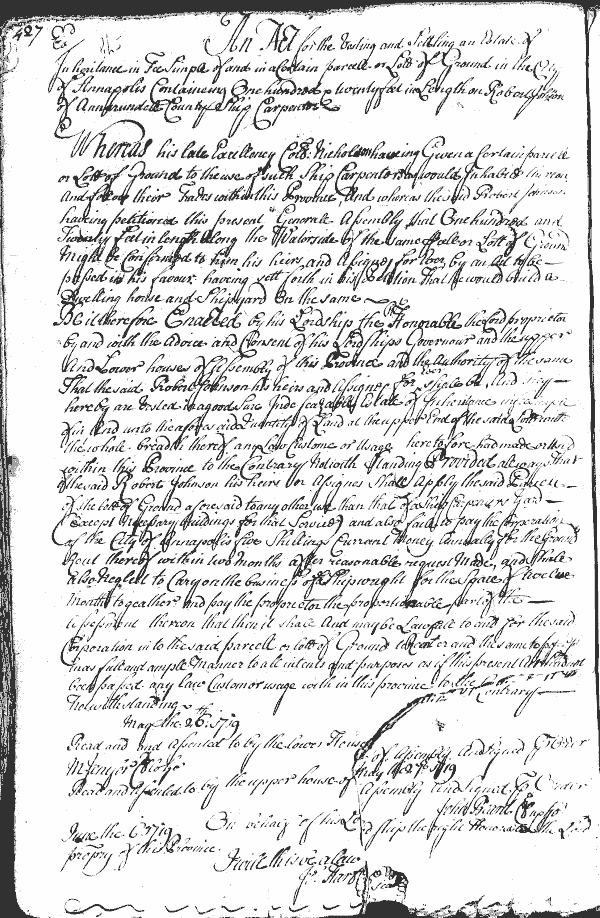 427
An Act for the Vesting and Settling an Estate of
Inheritance in Fee Simple of and in a Certain parcell or Lott of Ground in the City
of Annapolis Containeing One hundred & twenty feet in Length on Robert Johnson
of Annarundell County Ship Carpenter
Whereas his late Excellency Coll: Nicholson haveing Given a Certain parcell
or Lott of Ground to the use of such Ship Carpenters as would Inhabit
And follow their Trades within this Province And whereas the said Robert Johnson
haveing petitioned this present Generall Assembly that One hundred and
Twenty feet in length along the Waterside of the same or Lott of Ground
Might be Confirmed to him his heirs and Assignes for Ever by an Act to be
passed in his favour haveing sett forth in his Petition That he would build a
Dwelling house and Shipyard On the same
Be it therefore Enacted by his Lordship the Right Honorable the Lord proprietor
by and with the Advice and Consent of his Lordships Governour and the upper
And Lower houses of Assembly of this Province and the Authority of the same
That the said Robert Johnson his heirs and Assignes for ever shall be And
hereby are Vested in a good Sure Indefeazable Estate of Inheritance
of in And unto the aforesaid Quantity of Land at the upper End of the said Lott with
the whole breadth thereof any Law Custome or Usage heretofore had made or used
within this Province to the Contrary Notwithstanding Provided alwayes That
if the said Robert Johnson his heirs or Assignes Shall Apply the said
of the lott of Ground aforesaid to any other use than that of a Ship Carpenters Yard
(Except Necessary buildings for that Service) and also faile to pay the Corporation
of the City of Annapolis five Shillings Current Money Annually for the Ground
Rent thereof within two months after reasonable request Made, and shall
also Neglect to Carry on the business of Shipwright for the Space of twelve
Months together and pay the proprietor the proportionable part of the
assessment thereon that then it shall And may be Lawfull to and for the said
Corporation into the said parcell or lott of Ground to Enter and the same
in as full and ample Manner to all intents and purposes as if this present Act had not
been passed any law Custom or usage within this province to the Contrary
Notwithstanding
May the 26th: 1719
Read and Assented to by the lower House of Assembly And Signed Order
M: Jenifer Cl: lo: ho:
May the 27th 1719
Read and Assented to by the upper house of Assembly And signed Order
June the 6 1719 On behalf of his Lordship the right Honorable the Lord
propry of this Province
I will this be a Law
Jo: Hart Seal